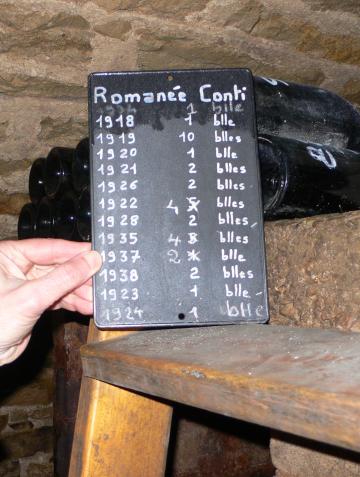 Romanée Conti
1 blle
1918 1 blle
1919 10 blles
1920 1 blle
1921 2 blles
1926 2 blles
1922 4 blles
1928 2 blles
1935 4 blles
1937 2 blle
1938 2 blles
1923 1 blle
1924 1 blle